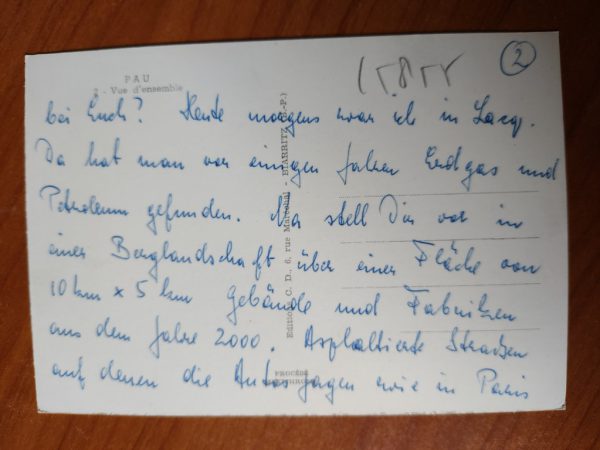 PAU
2 - Vue d'ensemble
2
bei Euch? Heute morgens war ich in Lacq.
Da hat man vor einigen Jahren Erdgas und
Petroleum gefunden. Na stell Dir vor in
einer Berglandschaft über einer Fläche von
10 km x 5 km Gebände und Fabriken
aus dem Jahre 2000. Asphaltierte Straßen
auf denen die Autos jagen wie in Paris
Editions C. D., 6, rue Maréchal - BIARRITZ (B.-P.)
PROCÉDÉ